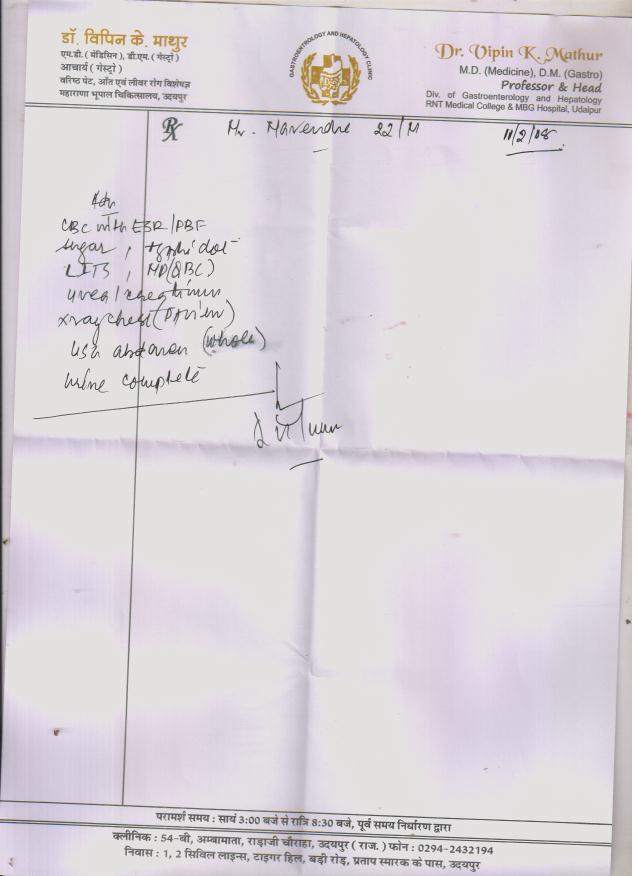 डॉ. विपिन के. माथुर
एम.डी. ( मेडिसिन ), डी.एम. ( गेस्ट्रो )
आचार्य ( गेस्ट्रो )
वरिष्ठ पेट, आँत एवं लीवर रोग विशेषज्ञ
महाराणा भूपाल चिकित्सालय, उदयपुर
GASTROENTROLOGY AND HEPATOLOGY CLINIC
Dr. Vipin K. Mathur
M.D. (Medicine), D.M. (Gastro)
Professor & Head
Div. of Gastroenterology and Hepatology
RNT Medical College & MBG Hospital, Udaipur
Rx Mr. 22/M 11/2/08
Adv
CBC with ESR/PBF
sugar, typhi dot
LFTS, MP(QBC)
urea/creatinin
xray chest (PA view)
USG abdomen (whole)
urine complete
परामर्श समय : सायं 3:00 बजे से रात्रि 8:30 बजे, पूर्व समय निर्धारण द्वारा
क्लीनिक : 54-बी, अम्बामाता, राड़ाजी चौराहा, उदयपुर ( राज. ) फोन : 0294-2432194
निवास : 1, 2 सिविल लाइन्स, टाइगर हिल, बड़ी रोड़, प्रताप स्मारक के पास, उदयपुर